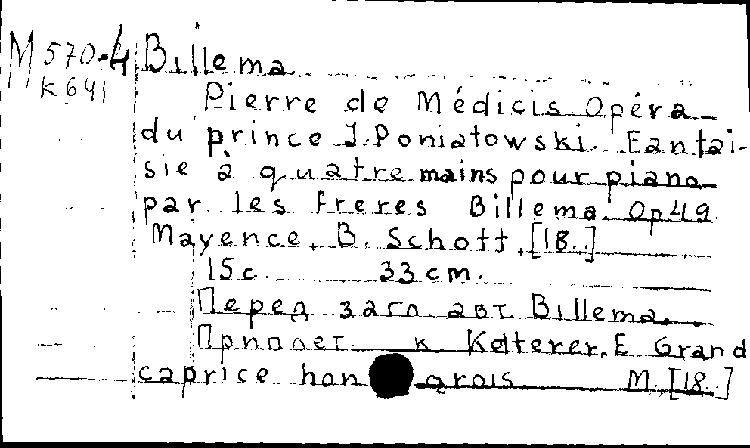 М 570-4 Billema
К 641
Pierre de Médicis Opéra
du prince J. Poniatowski. Fantai-
sie à quatre mains pour piano
par les Freres Billema. Op 49
Mayence, B. Schott, [18..]
15 с. 33 cm.
Перед загл. авт. Billema.
Приплет. к Ketterer, E. Grand
caprice hon grois M, [18..]